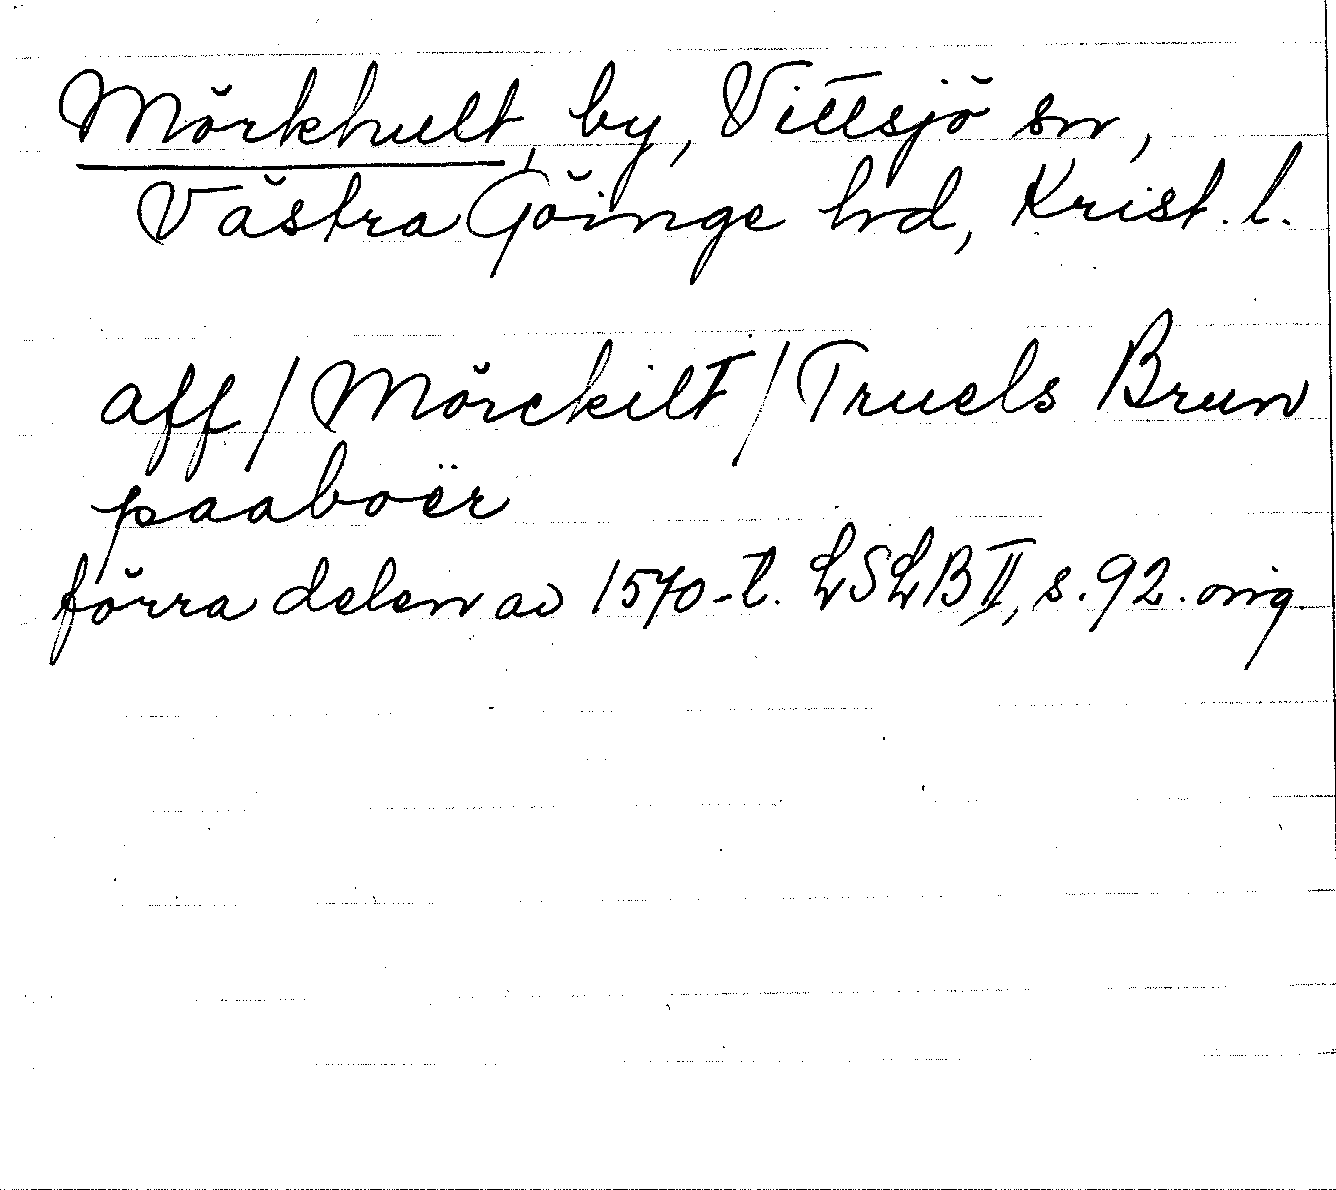 Mörkhult, by, Vittsjö sn,
Västra Göinge hd, Krist. l.
aff / Mörckilt / Truels Brun
paaboër
förra delen av 1570-t. LSLB II, s. 92. orig.